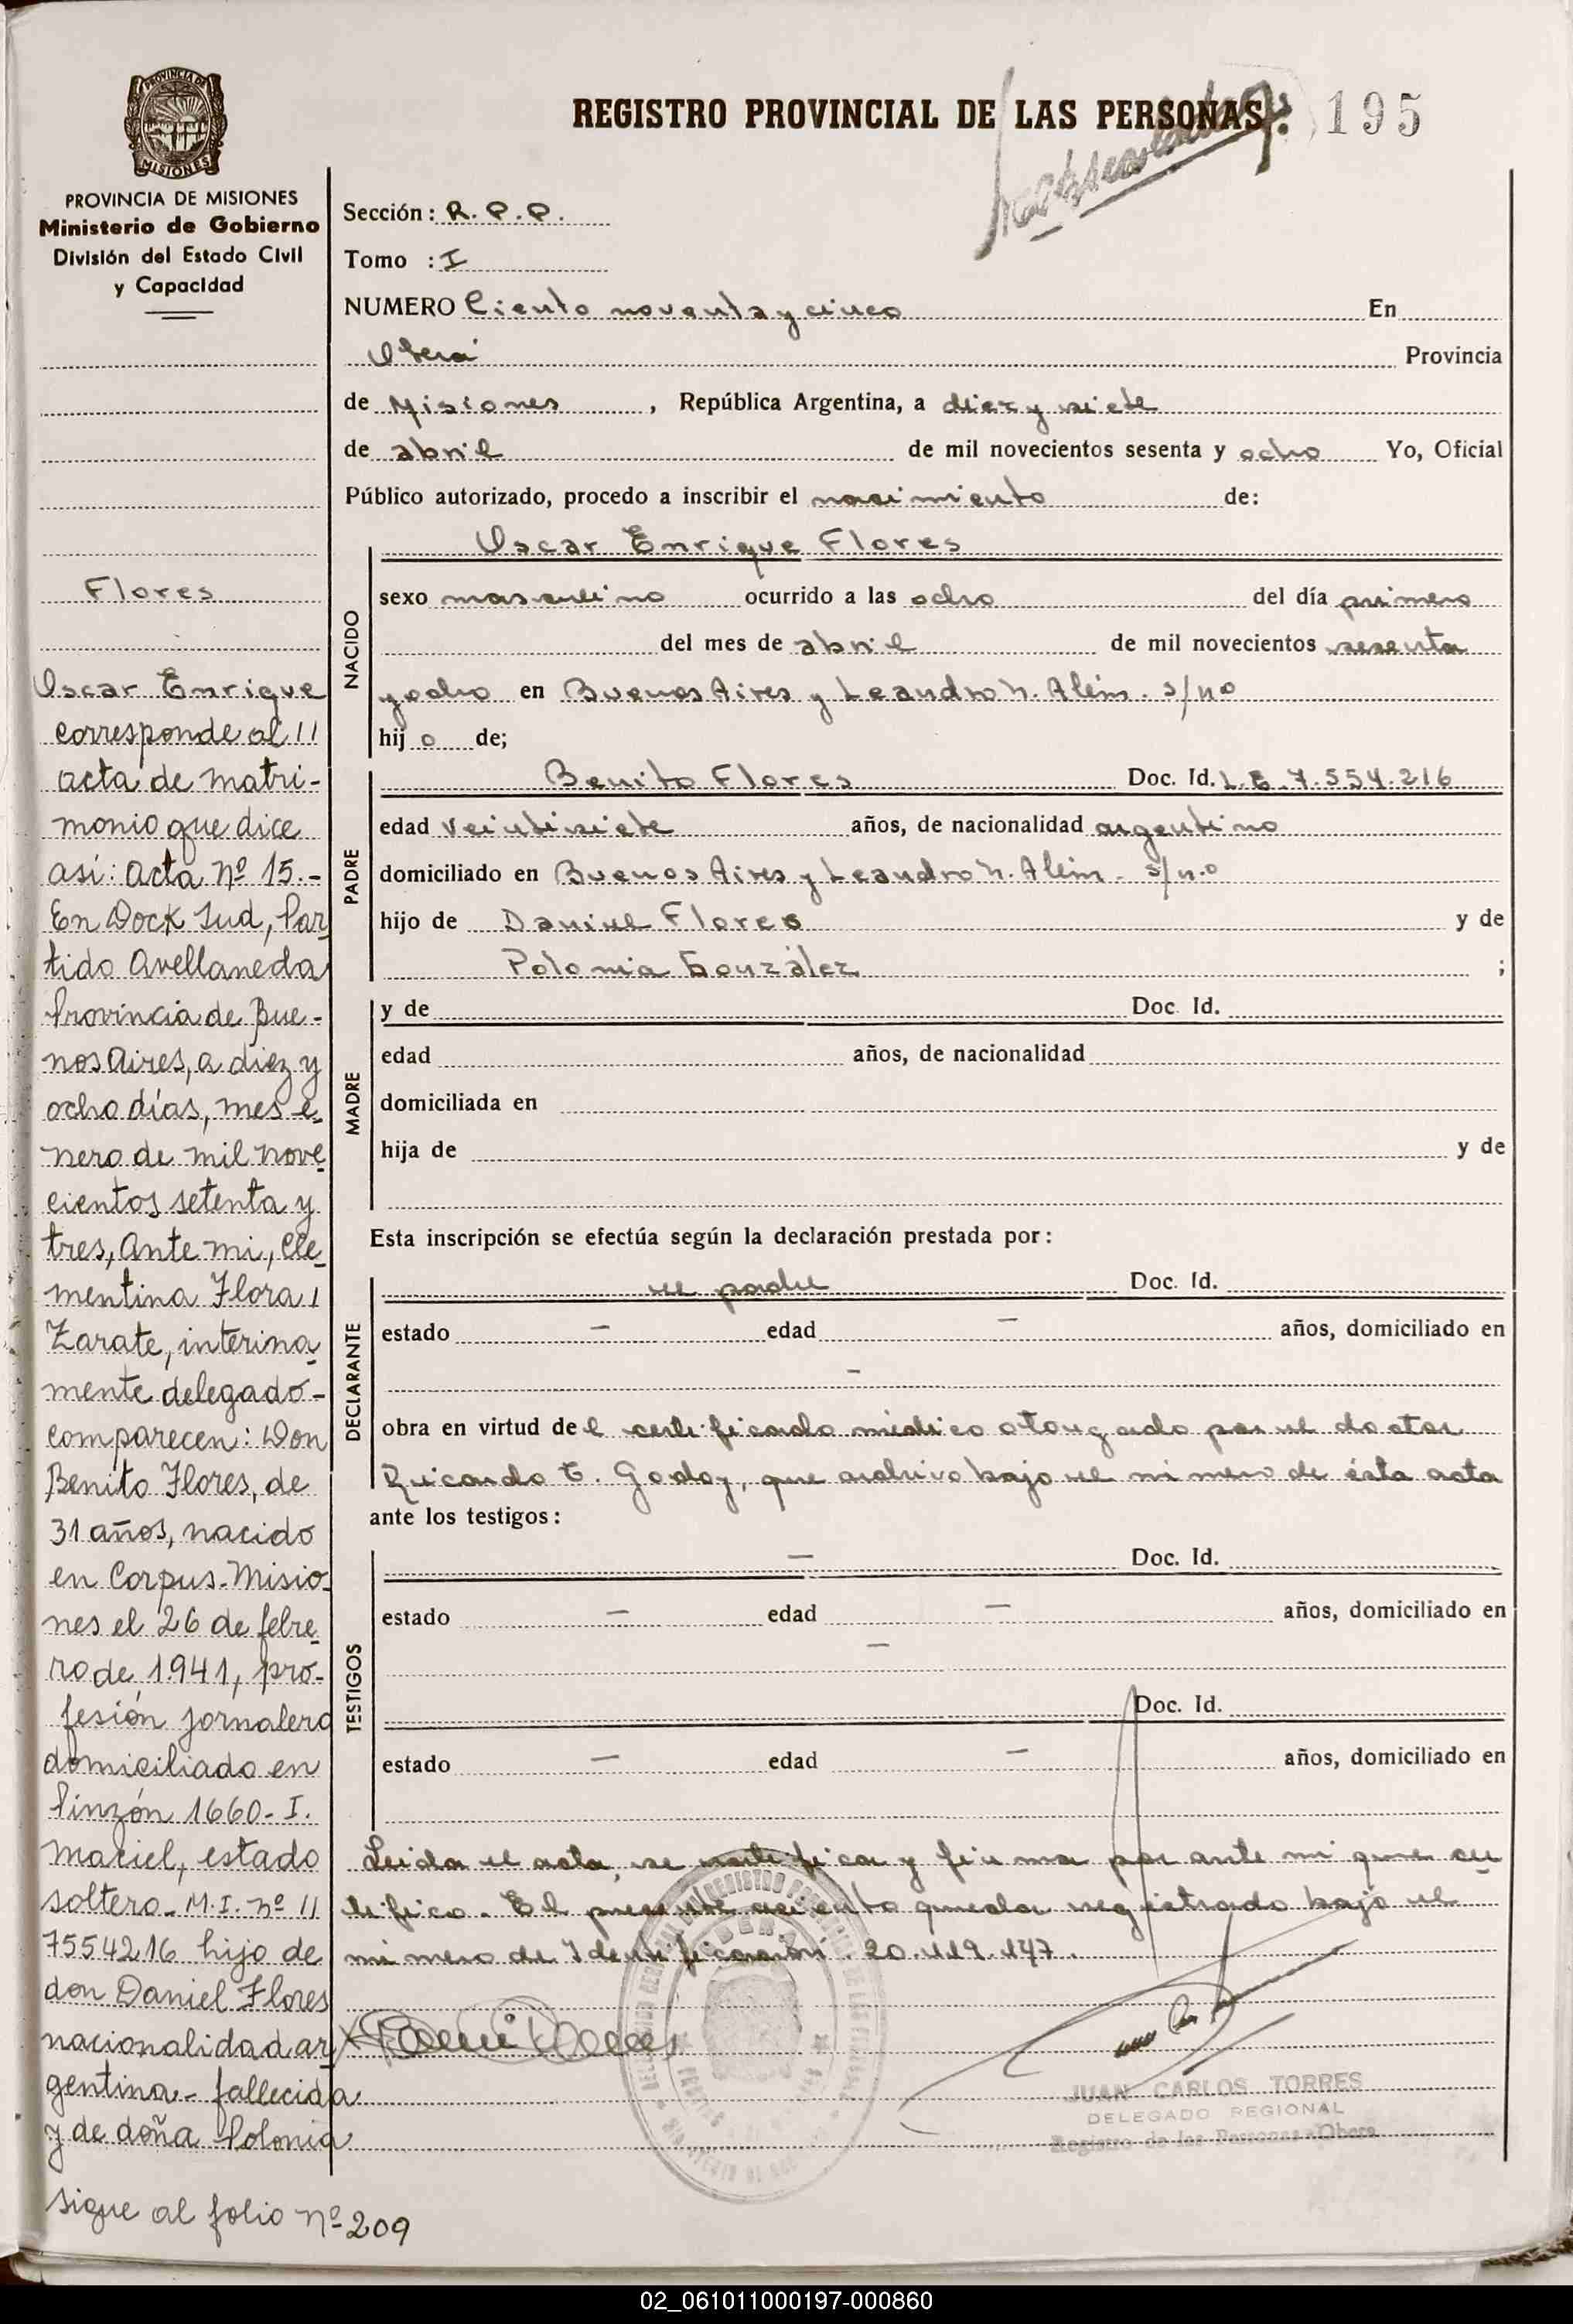 PROVINCIA DE MISIONES
PROVINCIA DE MISIONES
Ministerio de Gobierno
División del Estado Civil
y Capacidad
Flores
Oscar Enrique
corresponde al 11
acta de matri-
monio que dice
así: Acta Nº 15.-
En Dock Sud, Par
tido Avellaneda
Provincia de Bue-
nos Aires, a diez y
ocho días, mes e-
nero de mil nove
cientos setenta y
tres, Ante mi, Cle-
mentina Flora
Zarate, interina-
mente delegado-
comparecen: Don
Benito Flores, de
31 años, nacido
en Corpus-Misio-
nes el 26 de febre-
ro de 1941, pro-
fesión jornalero
domiciliado en
Pinzón 1660-I.
Maciel, estado
soltero-M.I. nº 11
7554216 hijo de
don Daniel Flores
nacionalidad ar
gentina-fallecida
y de doña Polonia
sigue al folio nº 209
REGISTRO PROVINCIAL DE LAS PERSONAS 195
Sección: R.P.P.
Tomo : I
NUMERO Ciento noventa y cinco En
Oberá Provincia
de Misiones, República Argentina, a diez y siete
de abril de mil novecientos sesenta y ocho Yo, Oficial
Público autorizado, procedo a inscribir el nacimiento de:
NACIDO
Oscar Enrique Flores
sexo masculino ocurrido a las ocho del día primero
del mes de abril de mil novecientos sesenta
y ocho en Buenos Aires y Leandro N. Alem. s/no
hijo de;
PADRE
Benito Flores Doc. Id. L.E. 7.554.216
edad veintisiete años, de nacionalidad argentino
domiciliado en Buenos Aires y Leandro N. Alem - s/n.o
hijo de Daniel Flores y de
Polonia González ;
MADRE
y de Doc. Id.
edad años, de nacionalidad
domiciliada en
hija de y de
Esta inscripción se efectúa según la declaración prestada por:
DECLARANTE
el padre Doc. Id.
estado - edad - años, domiciliado en
-
obra en virtud del certificado médico otorgado por el doctor
Ricardo E. Godoy, que archivo bajo el número de ésta acta
ante los testigos:
TESTIGOS
- Doc. Id.
estado - edad - años, domiciliado en
-
Doc. Id.
estado - edad - años, domiciliado en
Leida el acta, se ratifica y firma por ante mi que cer
tifico. El presente asiento queda registrado bajo el
número de Identificación 20.119.147.
JUAN CARLOS TORRES
DELEGADO REGIONAL
Registro de las Personas - Obera
02_061011000197-000860